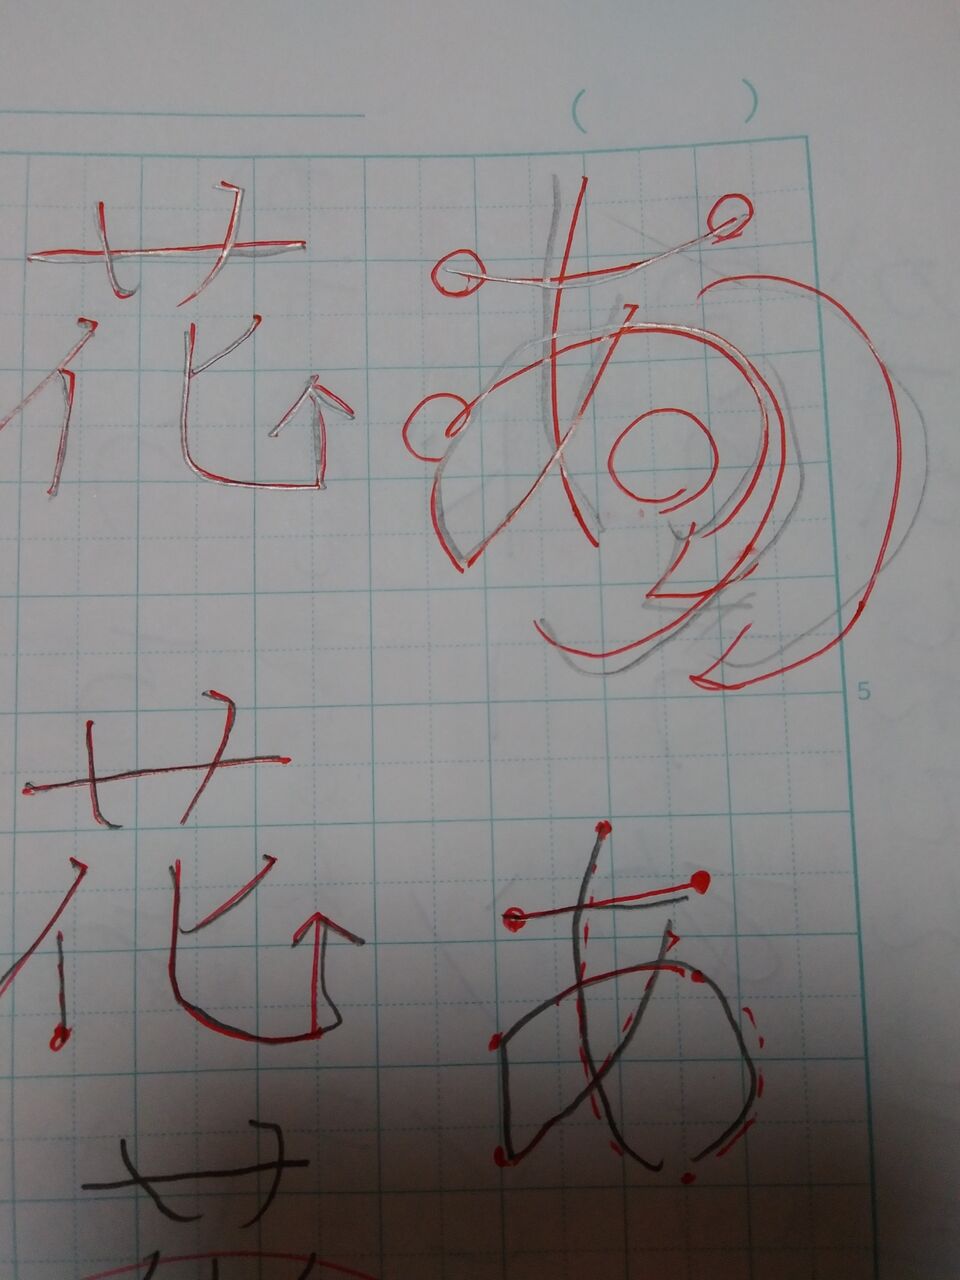 あ
あ
花
花
5